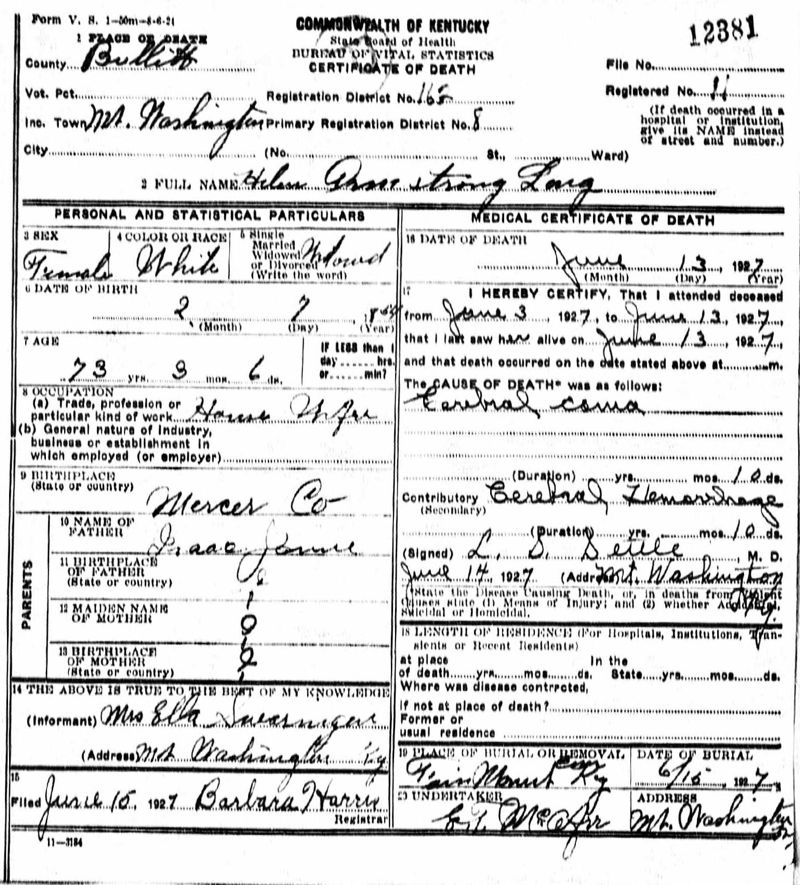 Form V. S. 1-50m-8-6-21
12381
COMMONWEALTH OF KENTUCKY
State Board of Health
BUREAU OF VITAL STATISTICS
CERTIFICATE OF DEATH
1 PLACE OF DEATH
County Bullitt
File No.
Vot. Pct.
Registration District No. 162
Registered No. 11
Inc. Town Mt. Washington Primary Registration District No. 8
(If death occurred in a hospital or institution, give its NAME instead of street and number.)
City (No. St., Ward)
2 FULL NAME Helen Armstrong Long
PERSONAL AND STATISTICAL PARTICULARS
3 SEX
Female
4 COLOR OR RACE
White
5 Single
Married
Widowed
or Divorced
(Write the word)
Widowd
6 DATE OF BIRTH
2 7
(Month) (Day) (Year)
7 AGE
73 yrs. 3 mos. 6 ds.
IF LESS than 1
day hrs.
or min?
8 OCCUPATION
(a) Trade, profession or
particular kind of work House Wife
(b) General nature of industry,
business or establishment in
which employed (or employer)
9 BIRTHPLACE
(State or country)
Mercer Co
PARENTS
10 NAME OF
FATHER
Isaac
11 BIRTHPLACE
OF FATHER
(State or country)
?
12 MAIDEN NAME
OF MOTHER
13 BIRTHPLACE
OF MOTHER
(State or country)
14 THE ABOVE IS TRUE TO THE BEST OF MY KNOWLEDGE
(Informant) Mrs Ella Swearingen
(Address) Mt Washington Ky
15
Filed June 15, 1927 Barbara Harris
Registrar
11-3184
MEDICAL CERTIFICATE OF DEATH
16 DATE OF DEATH
June 13 1927
(Month) (Day) (Year)
17 I HEREBY CERTIFY, That I attended deceased
from June 3, 1927, to June 13, 1927,
that I last saw her alive on June 13, 1927,
and that death occurred on the date stated above at m.
The CAUSE OF DEATH* was as follows:
Cerebral coma
(Duration) yrs. mos. 10 ds.
Contributory Cerebral Hemorrhage
(Secondary)
(Duration) yrs. mos. 10 ds.
(Signed) L. D. Settle, M. D.
June 14, 1927 (Address) Mt. Washington
Ky.
*State the Disease Causing Death, or, in deaths from Violent
Causes state (1) Means of Injury; and (2) whether Accidental,
Suicidal or Homicidal.
18 LENGTH OF RESIDENCE (For Hospitals, Institutions, Tran-
sients or Recent Residents)
at place In the
of death yrs. mos. ds. State yrs. mos. ds.
Where was disease contrpcted,
if not at place of death?
Former or
usual residence
19 PLACE OF BURIAL OR REMOVAL
Fair Mount Cem Ky
DATE OF BURIAL
6/15, 1927,
20 UNDERTAKER
ADDRESS
Mt. Washington
Ky.